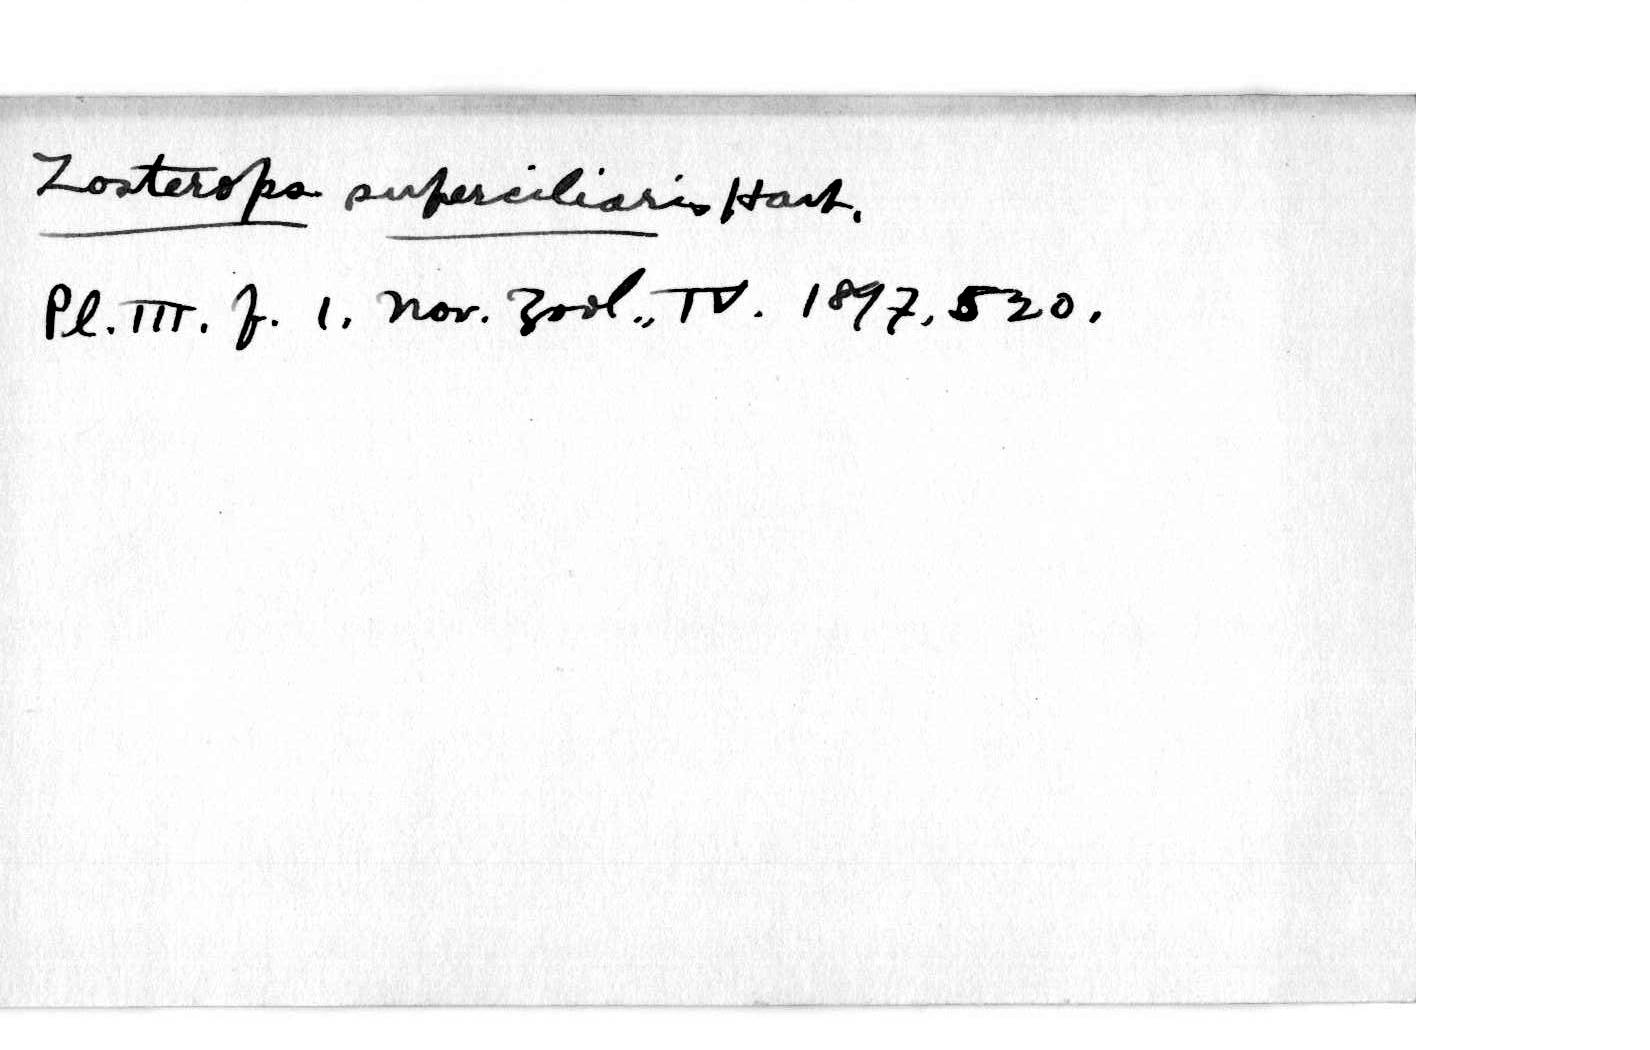 Zosterops superciliaris Hart.
Pl. III. f. 1. Nov. Zool., IV. 1897, 520.